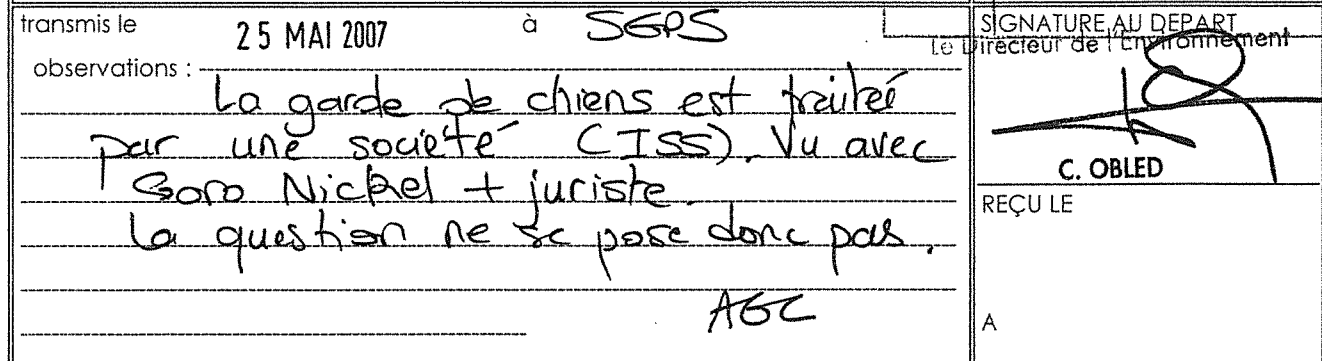 transmis le 25 MAI 2007 à SGPS
observations :
La garde de chiens est traitée
par une société (ISS). Vu avec
Goro Nickel + juriste.
La question ne se pose donc pas.
AGC
SIGNATURE AU DEPART
Le Directeur de l'Environnement
C. OBLED
REÇU LE
A